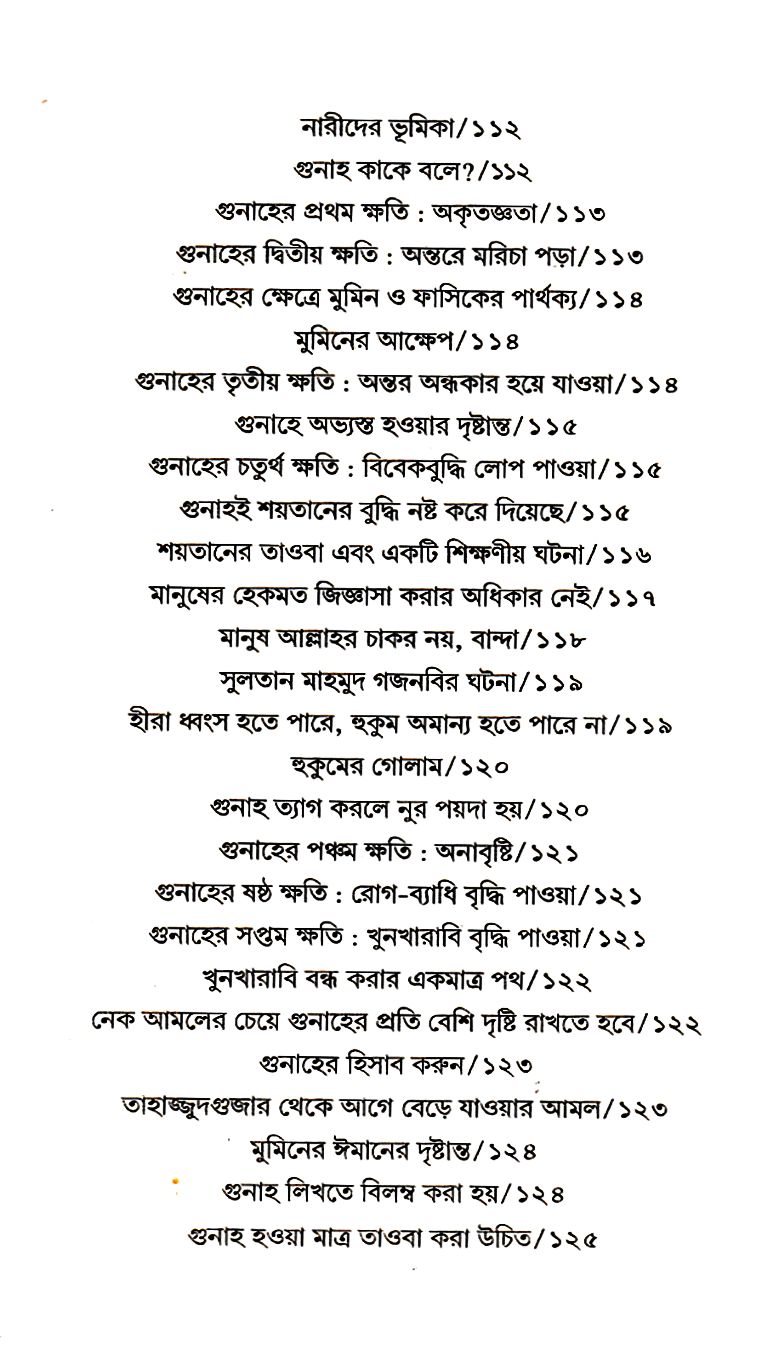 নারীদের ভূমিকা/১১২
গুনাহ কাকে বলে?/১১২
গুনাহের প্রথম ক্ষতি : অকৃতজ্ঞতা/১১৩
গুনাহের দ্বিতীয় ক্ষতি : অন্তরে মরিচা পড়া/১১৩
গুনাহের ক্ষেত্রে মুমিন ও ফাসিকের পার্থক্য/১১৪
মুমিনের আক্ষেপ/১১৪
গুনাহের তৃতীয় ক্ষতি : অন্তর অন্ধকার হয়ে যাওয়া/১১৪
গুনাহে অভ্যস্ত হওয়ার দৃষ্টান্ত/১১৫
গুনাহের চতুর্থ ক্ষতি : বিবেকবুদ্ধি লোপ পাওয়া/১১৫
গুনাহই শয়তানের বুদ্ধি নষ্ট করে দিয়েছে/১১৫
শয়তানের তাওবা এবং একটি শিক্ষণীয় ঘটনা/১১৬
মানুষের হেকমত জিজ্ঞাসা করার অধিকার নেই/১১৭
মানুষ আল্লাহর চাকর নয়, বান্দা/১১৮
সুলতান মাহমুদ গজনবির ঘটনা/১১৯
হীরা ধ্বংস হতে পারে, হুকুম অমান্য হতে পারে না/১১৯
হুকুমের গোলাম/১২০
গুনাহ ত্যাগ করলে নুর পয়দা হয়/১২০
গুনাহের পঞ্চম ক্ষতি : অনাবৃষ্টি/১২১
গুনাহের ষষ্ঠ ক্ষতি : রোগ-ব্যাধি বৃদ্ধি পাওয়া/১২১
গুনাহের সপ্তম ক্ষতি : খুনখারাবি বৃদ্ধি পাওয়া/১২১
খুনখারাবি বন্ধ করার একমাত্র পথ/১২২
নেক আমলের চেয়ে গুনাহের প্রতি বেশি দৃষ্টি রাখতে হবে/১২২
গুনাহের হিসাব করুন/১২৩
তাহাজ্জুদগুজার থেকে আগে বেড়ে যাওয়ার আমল/১২৩
মুমিনের ঈমানের দৃষ্টান্ত/১২৪
গুনাহ লিখতে বিলম্ব করা হয়/১২৪
গুনাহ হওয়া মাত্র তাওবা করা উচিত/১২৫